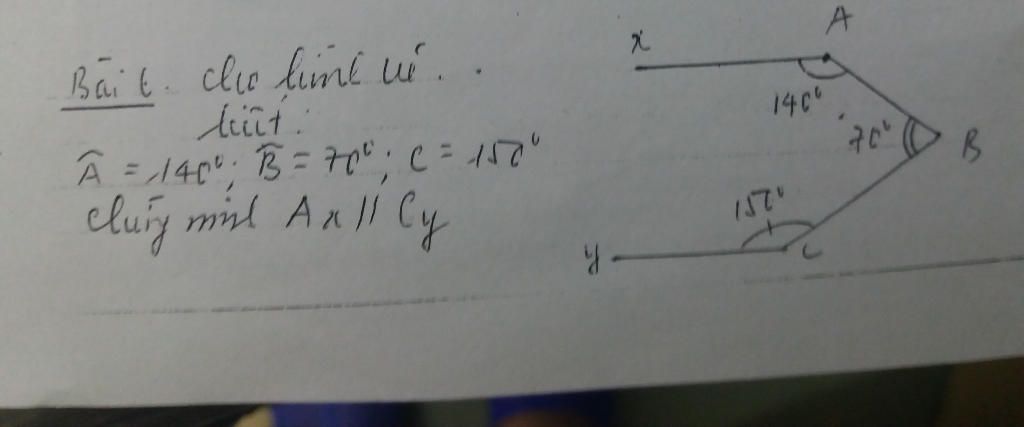 Bài 6. Cho hình vẽ.
biết:
Â = 140°; B̂ = 70°; C = 150°
Chứng minh Ax // Cy
x
A
140°
70°
B
150°
y
C